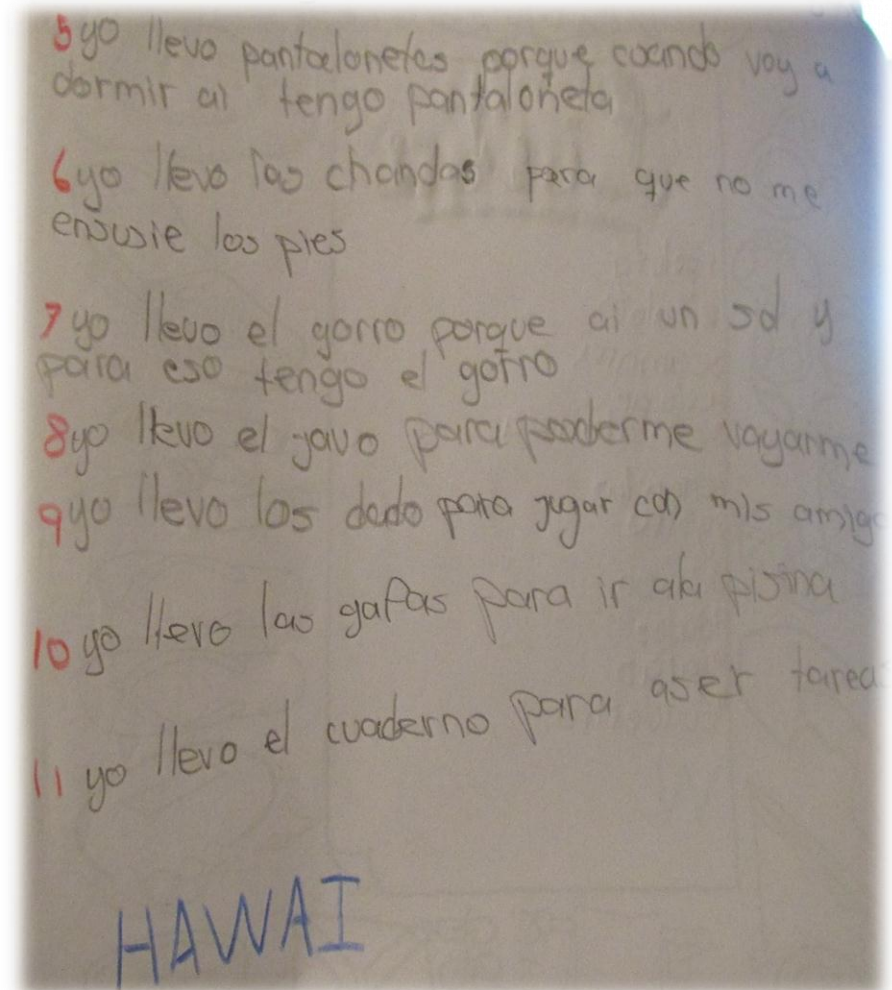 5 yo llevo pantalonetas porque coando voy a
dormir ai tengo pantaloneta
6 yo llevo las chandas para que no me
ensusie los pies
7 yo llevo el gorro porque ai un sol y
para eso tengo el gorro
8 yo llevo el javo para poderme vayarme
9 yo llevo los dado para jugar con mis amigo
10 yo llevo las gafas para ir ala pisina
11 yo llevo el cuaderno para aser tarea
HAWAI